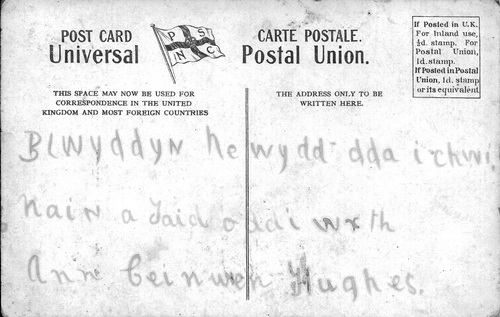 POST CARD
Universal
P S N C
CARTE POSTALE.
Postal Union.
If Posted in U.K.
For Inland use,
½d. stamp. For
Postal Union,
1d. stamp.
If Posted in Postal
Union, 1d. stamp
or its equivalent
THIS SPACE MAY NOW BE USED FOR
CORRESPONDENCE IN THE UNITED
KINGDOM AND MOST FOREIGN COUNTRIES
THE ADDRESS ONLY TO BE
WRITTEN HERE.
Blwyddyn newydd dda i chwi
Nain a Taid oddi wrth
Ann Ceinwen Hughes.